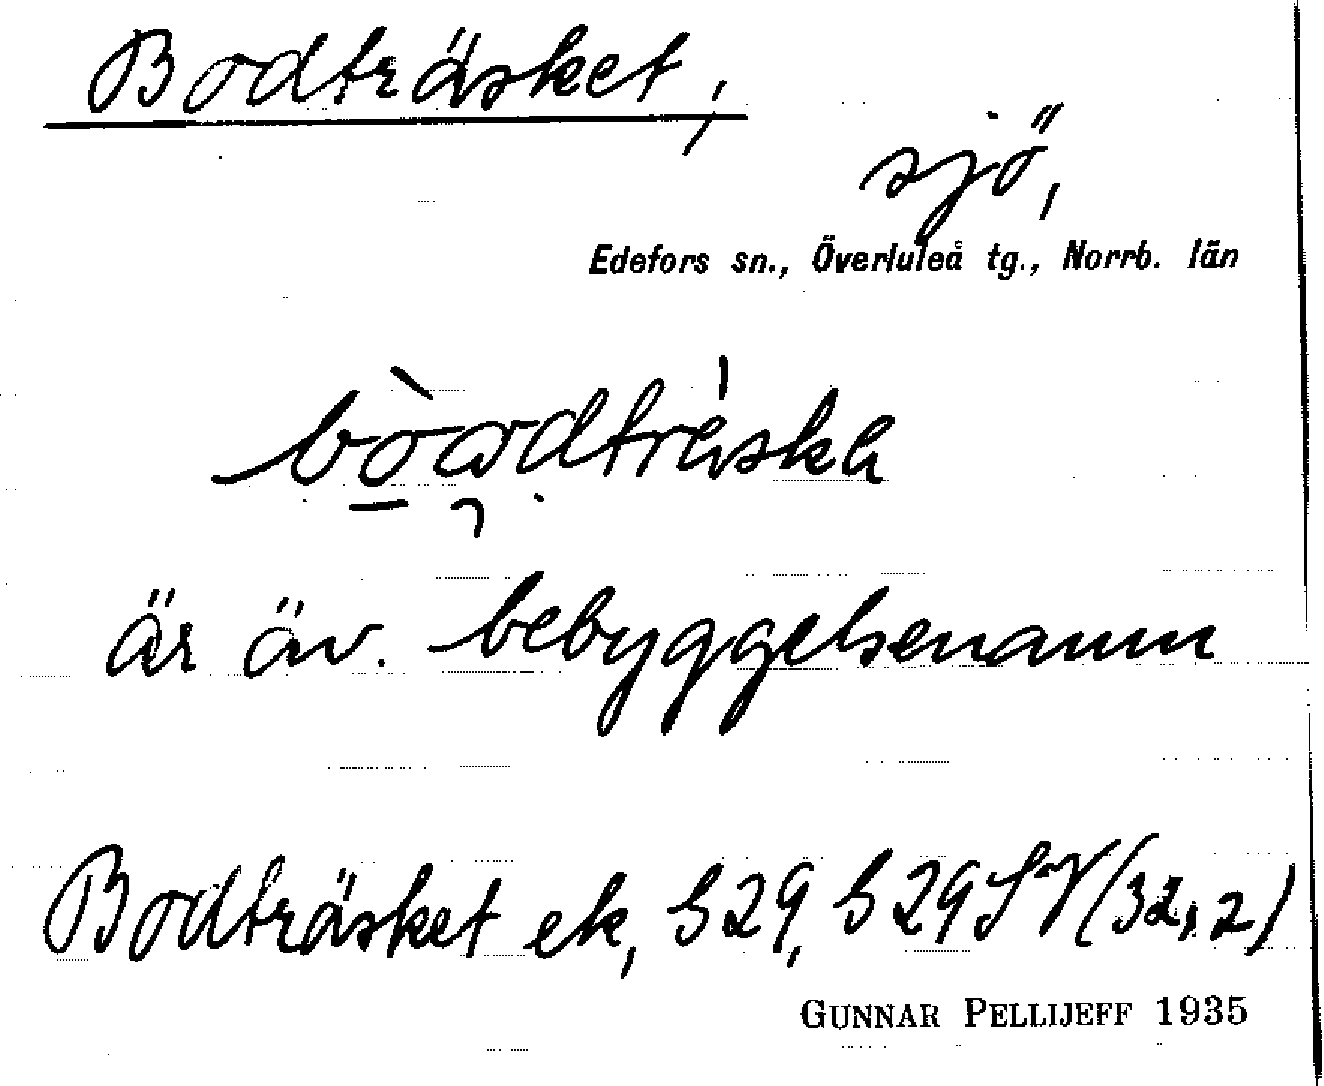 Bodträsket,
sjö,
Edefors sn., Överluleå tg., Norrb. län
är äv. bebyggelsenamn
Bodträsket ek, S29, S29SV (32,2)
GUNNAR PELLIJEFF 1935